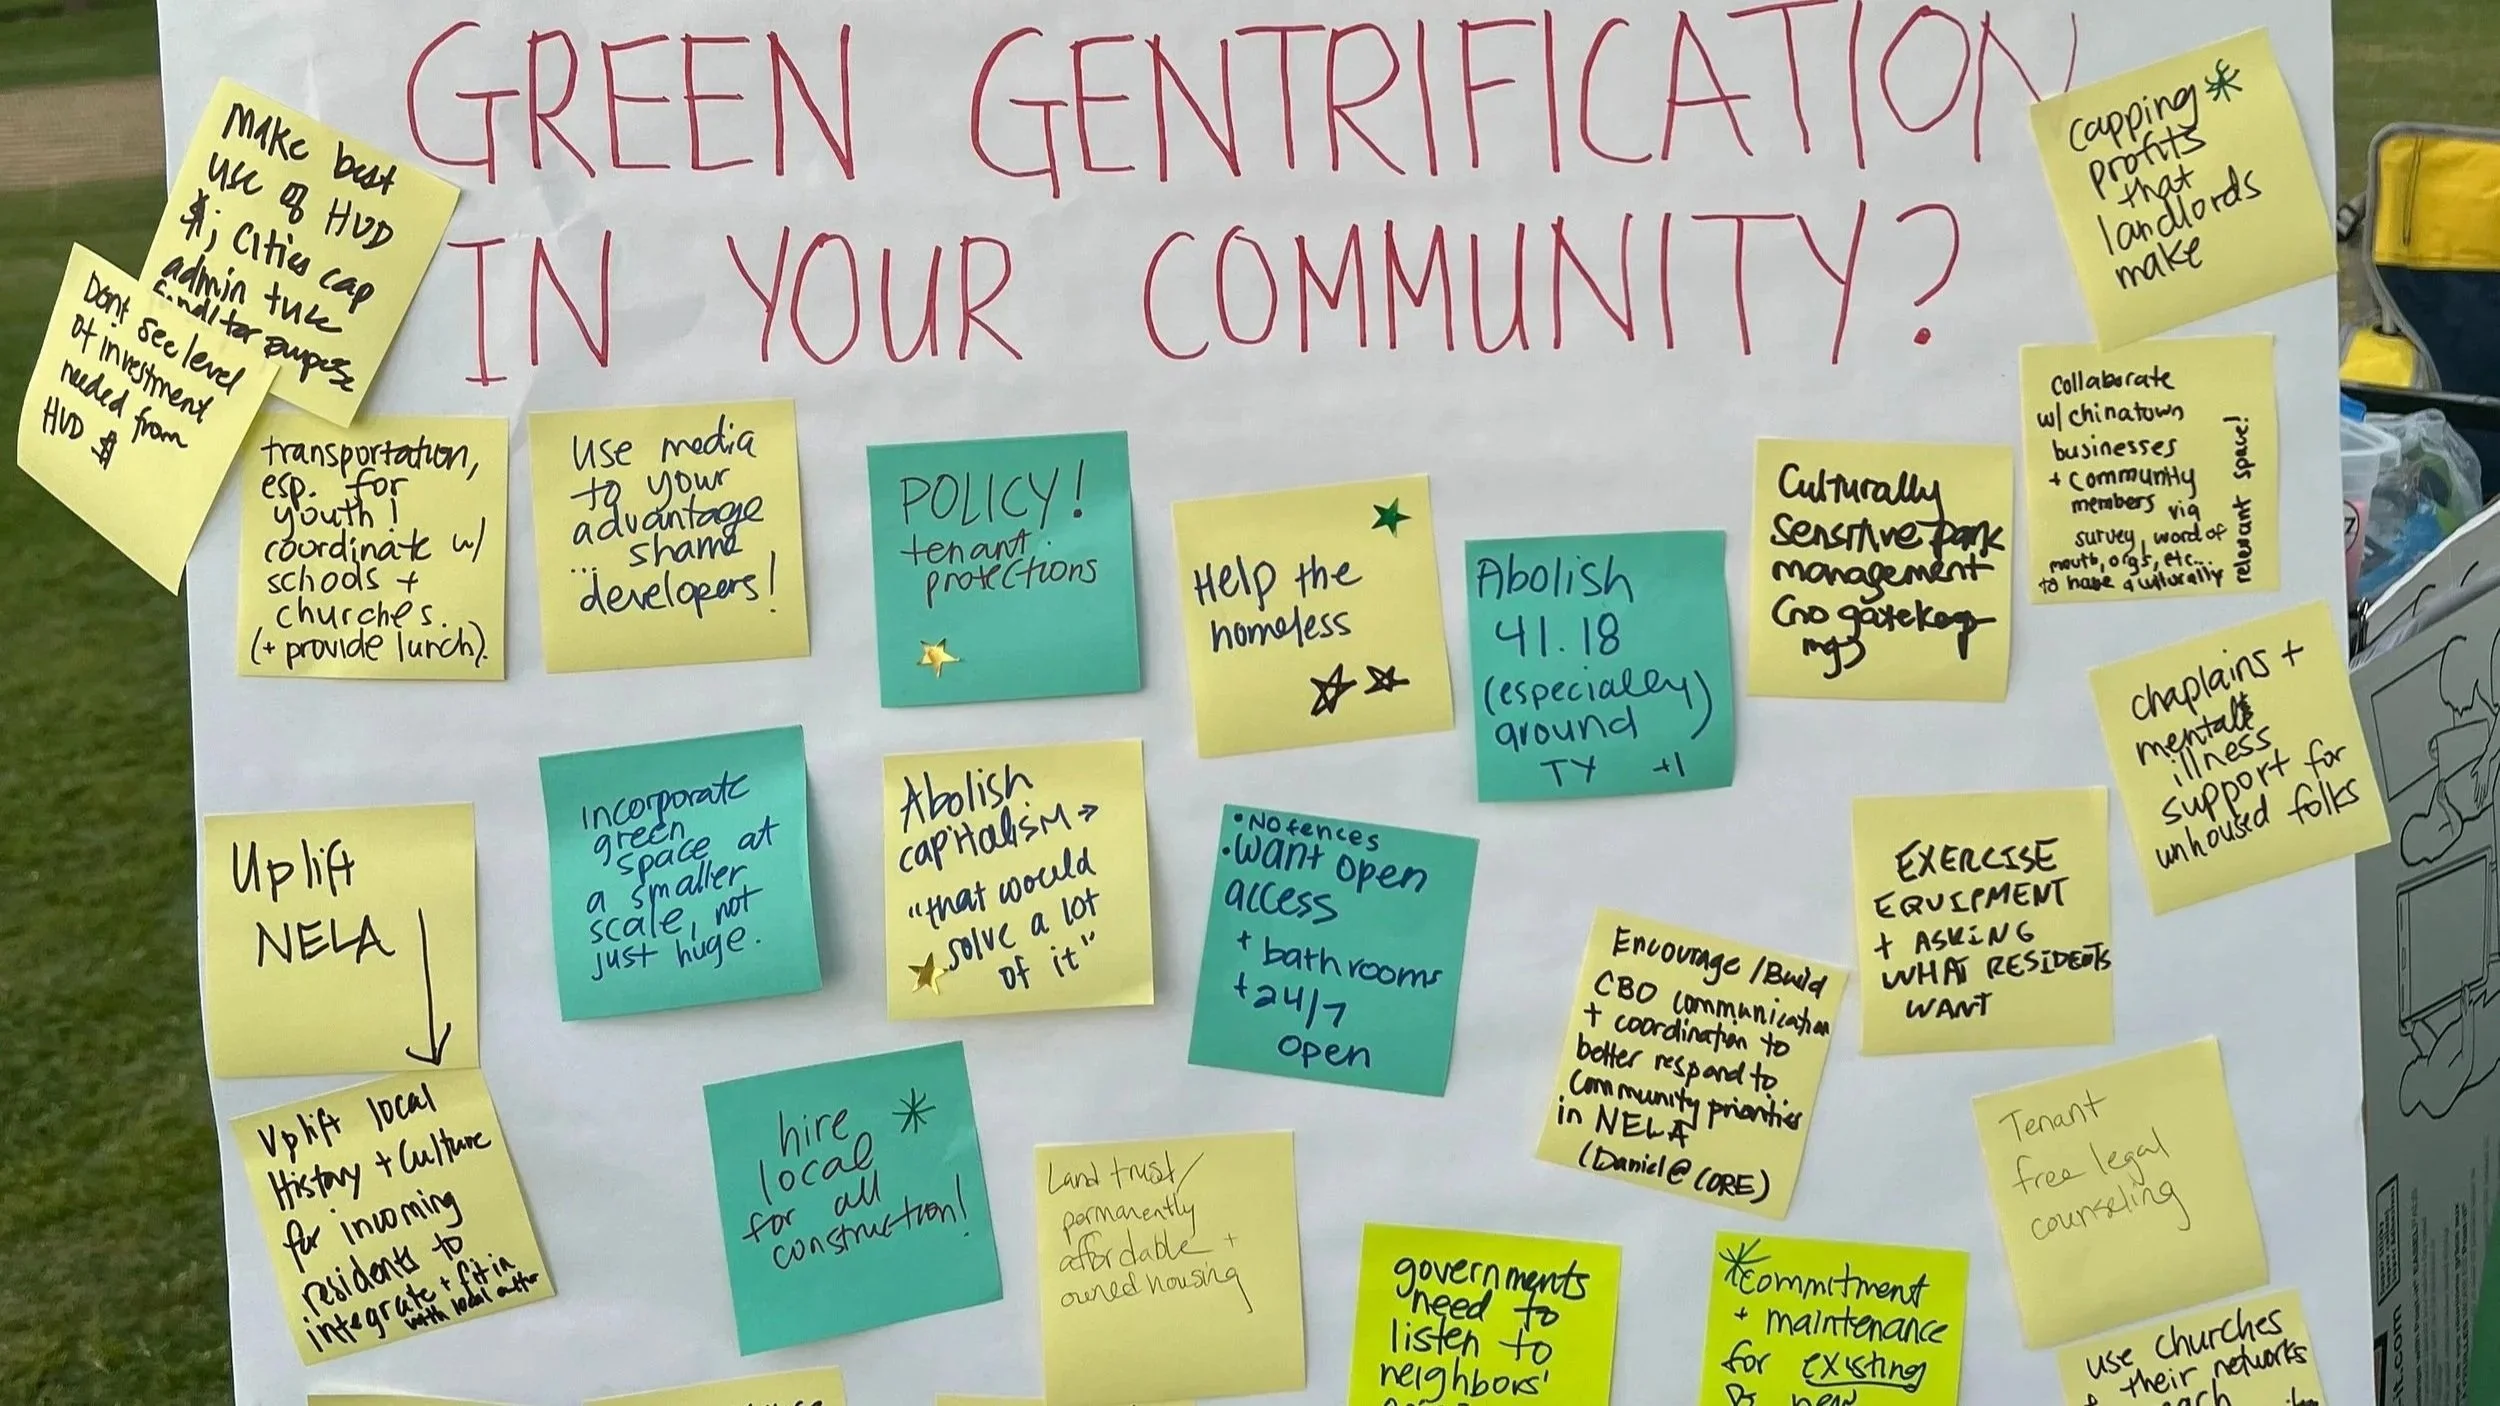 GREEN GENTRIFICATION
IN YOUR COMMUNITY?
Make best
use of HUD
$; Cities cap
admin
for purpose
Dont see level
of investment
needed from
HUD $
transportation,
esp. for
youth!
coordinate w/
schools +
churches.
(+ provide lunch).
use media
to your
advantage
... shame
developers!
POLICY!
tenant
protections
Help the
homeless
Abolish
41.18
(especially)
around
TY +1
Culturally
sensitive park
management
(no gatekeep
ing)
capping
profits
that
landlords
make
collaborate
w/ chinatown
businesses
+ community
members via
survey, word of
mouth, orgs, etc...
to have a culturally
relevant space!
chaplains +
mental
illness
support for
unhoused folks
Uplift
NELA
incorporate
green
space at
a smaller
scale, not
just huge.
Abolish
capitalism →
"that would
solve a lot
of it"
• No fences
• Want open
access
+ bathrooms
+ 24/7
open
EXERCISE
EQUIPMENT
+ ASKING
WHAT RESIDENTS
WANT
Encourage / Build
CBO communication
+ coordination to
better respond to
community priorities
in NELA
(Daniel @ CORE)
Uplift local
History + Culture
for incoming
residents to
integrate + fit in
with local
hire
local
for all
construction!
Land trust/
permanently
affordable +
owned housing
Tenant
free legal
counseling
governments
need to
listen to
neighbors'
commitment
+ maintenance
for existing
new
use churches
+ their networks